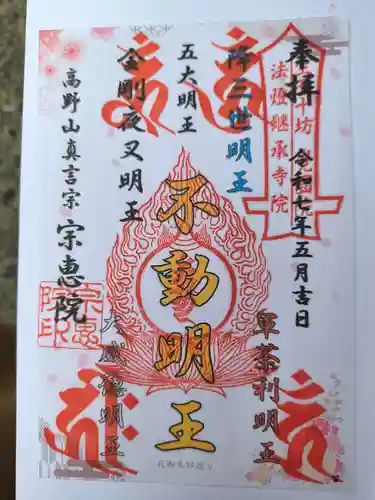 奉拝
令和七年五月吉日
法燈継承寺院
降三世明王
軍荼利明王
五大明王
不動明王
金剛夜叉明王
大威徳明王
高野山真言宗
宗恵院
宗恵
院印